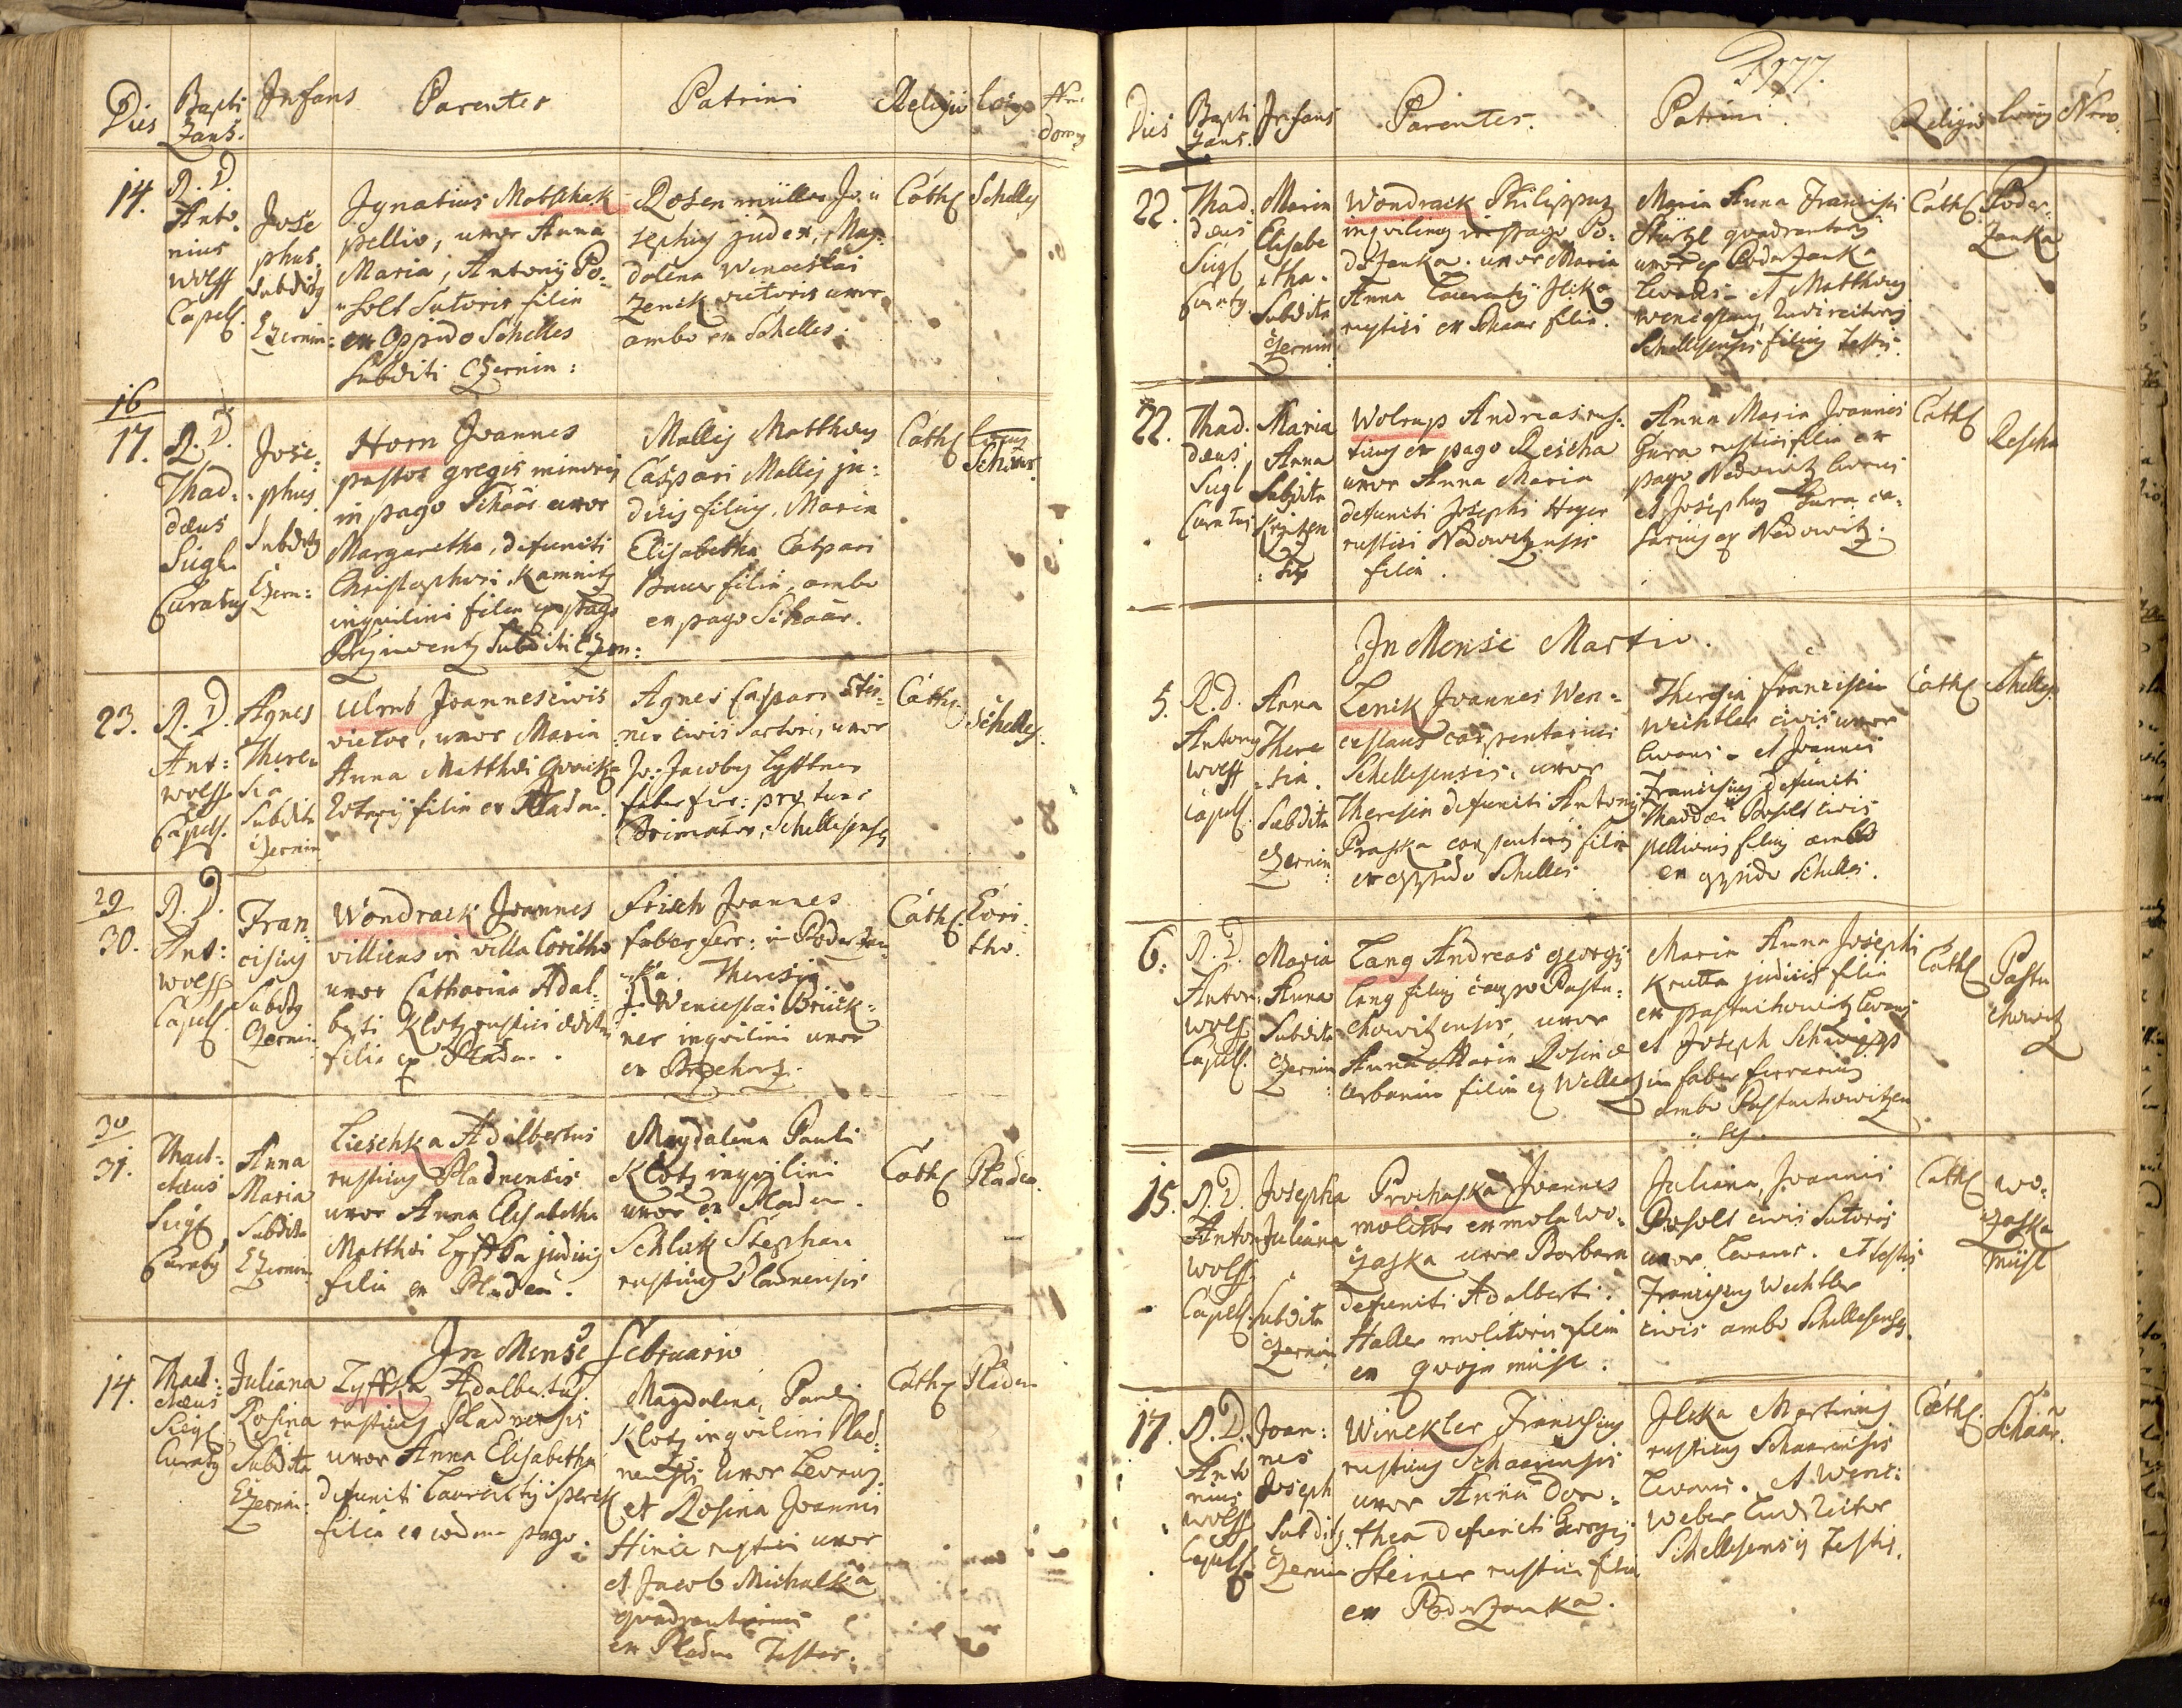 Dies Bapti Infans Parentes Patrini Religio Locus
zans.
14. R. D. Anto. nius Wolff Capell.
Jose phus. Subditg Czernin:
Ignatius Motschak
pellio, uxor Anna
Maria, Antonÿ Po-
solt Sutoris filia
ex Oppido Schelles
Subditi Czernin:
Rosenmüller Jo-
sephus judex, Mag-
dalena Wenceslai
Zenik vietoris uxor
ambo ex Schelles.
Cath. Schelles
16
17. R. D. Thad- dæus Sügl Curatus
Jose- phus Subditg Czern:
Horn Joannes
pastor gregis minoris
in pago Schaar uxor
Margaretha, defuncti
Christophori Kamnitz
inquilini filia ex pago
Subditi Czern:
Mallij Matthæus
Caspari Mallij ju-
dicis filius, Maria
Elisabetha Caspari
Bauer filia, ambo
ex pago Schaar.
Cath. Locus
Schaar
23. R. D. Ant: Wolff Capell.
Agnes There- sia Subdita Czernin
Ulmb Joannes civis
vietor, uxor Maria
Anna Matthæi
filia ex Pladen.
Agnes Caspari
civis Sartoris uxor
Jo: Jacobus Lyftner
faber ferr: pro tunc
Primator, Schellesensis
Cath. Schelles.
29
30. R. D. Ant: Wolff Capell.
Fran- ciscus Subditg Czernin
Wondrack Joannes
villicus in villa Coritho
uxor Catharina Adal-
berti Klotz rustici
filia ex Pladen.
Frisch Joannes
faber ferr: in Poderzan-
ka. Theresia
Wenceslai Brück-
ner inquilini uxor
ex
Cath. Cori-
tho.
30
31. Thad- dæus Sügl Curatus
Anna Maria Subdita Czernin
Lieschka Adalbertus
rusticus Pladnensis
uxor Anna Elisabetha
Matthæi Lyftka judicis
filia ex Pladen.
Magdalena Pauli
Klotz inquilini
uxor ex Pladen.
Schlick Stephan
rusticus Pladnensis
Cath. Pladen.
In Mense Februario
14. Thad- dæus Sügl Curatus
Juliana Rosina Subdita Czernin:
Lyftka Adalbertus
rusticus Pladnensis
uxor Anna Elisabetha
defuncti Laurentÿ Sperck
filia ex eodem pago.
Magdalena, Pauli
Klotz inquilini Plad-
nensis uxor Levans
et Rosina Joannis
Hinie rustici uxor
et Jacob Michalka
quadrantarius
ex Pladen Testes.
Cath. Pladen
1777.
Dies Bapti Infans Parentes. Patrini. Religio Locus Nro.
zans.
22. Thad: dæus Sügl Curatg
Maria Elisabe tha. Subdita Czernin
Wondrack Philippus
inquilinus in pago Po-
derzanka. uxor Maria
Anna Laurentÿ Jlska
rustici ex Schaar filia.
Maria Anna Francisci
Stürtzl quadrantarii
uxor ex Poderzanka
Levans. et Matthæus
Wenceslaus, Ludirectoris
Schellesensis filius Testis.
Cath. Poder-
zanka
22. Thad. dæus Sügl Curatus
Maria Anna Subdita
Wolrap Andreas rus-
ticus ex pago Rescha
uxor Anna Maria
defuncti Josephi Hoyer
rustici Nedowitzensis
filia.
Anna Maria Joannis
Gura rustici filia ex
pago Nedowitz Levans
et Josephus Gura
ex Nedowitz.
Cath. Rescha
In Mense Martio.
5. R. D. Antony Wolff Capell.
Anna There sia. Subdita Czernin
Zenik Joannes Wen-
ceslaus carpentarius
Schellesensis, uxor
Theresia defuncti Antonÿ
Praska carpentarÿ filia
ex oppido Schelles
Theresia Francisci
Wechtler civis uxor
Levans. et Joannes
Franciscus defuncti
Thaddæi Posolt civis
pellionis filius ambo
ex oppido Schelles.
Cath. Schelles.
6. R. D. Anton: Wolff Capell.
Maria Anna Subdita Czernin
Lang Andreas Georgÿ
Lang filius Pastu-
chowitzensis, uxor
Anna Maria Rosinæ
Urbanin filia ex
Maria Anna Josephi
Krutta judicis filia
ex Pastuchowitz Levans
et Joseph Schwipps
faber ferrarius
ambo Pastuchowitzen
ses.
Cath. Pastu
chowitz
15. R. D. Anton Wolff Capell.
Josepha Juliana Subdita Czernin
Prochaska Joannes
molitor ex mola Wo-
zaska uxor Barbara
defuncti Adalberti
Haller molitoris filia
ex mühl.
Juliana, Joannis
Posolt civis Sutoris
uxor Levans. et testis
Franciscus Wechtler
civis ambo Schellesenses.
Cath. Wo-
zaska
mühl
17. R. D. Anto nius Wolff Capell.
Joan- nes Joseph Subditg. Czernin
Winckler Franciscus
rusticus Schaarensis
uxor Anna Doro-
thea defuncti Georgÿ
Steiner rustici filia
ex Poderzanka.
Jlska Martinus
rusticus Schaarensis
Levans. et Wenc:
Weber Ludirector
Schellesensis Testis.
Cath. Schaar.